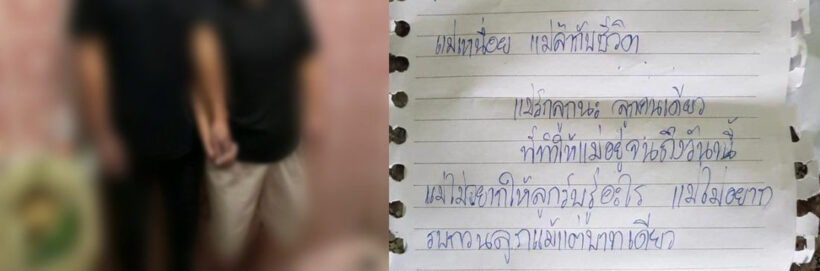 แม่เหนื่อย แม่ล้ากับชีวิต
แม่รักลูกนะ ลูกคนเดียว
ที่ทำให้แม่อยู่จนถึงวันนี้
แม่ไม่อยากให้ลูกรับรู้อะไร แม่ไม่อยาก
รบกวนลูกแม้แต่บาทเดียว